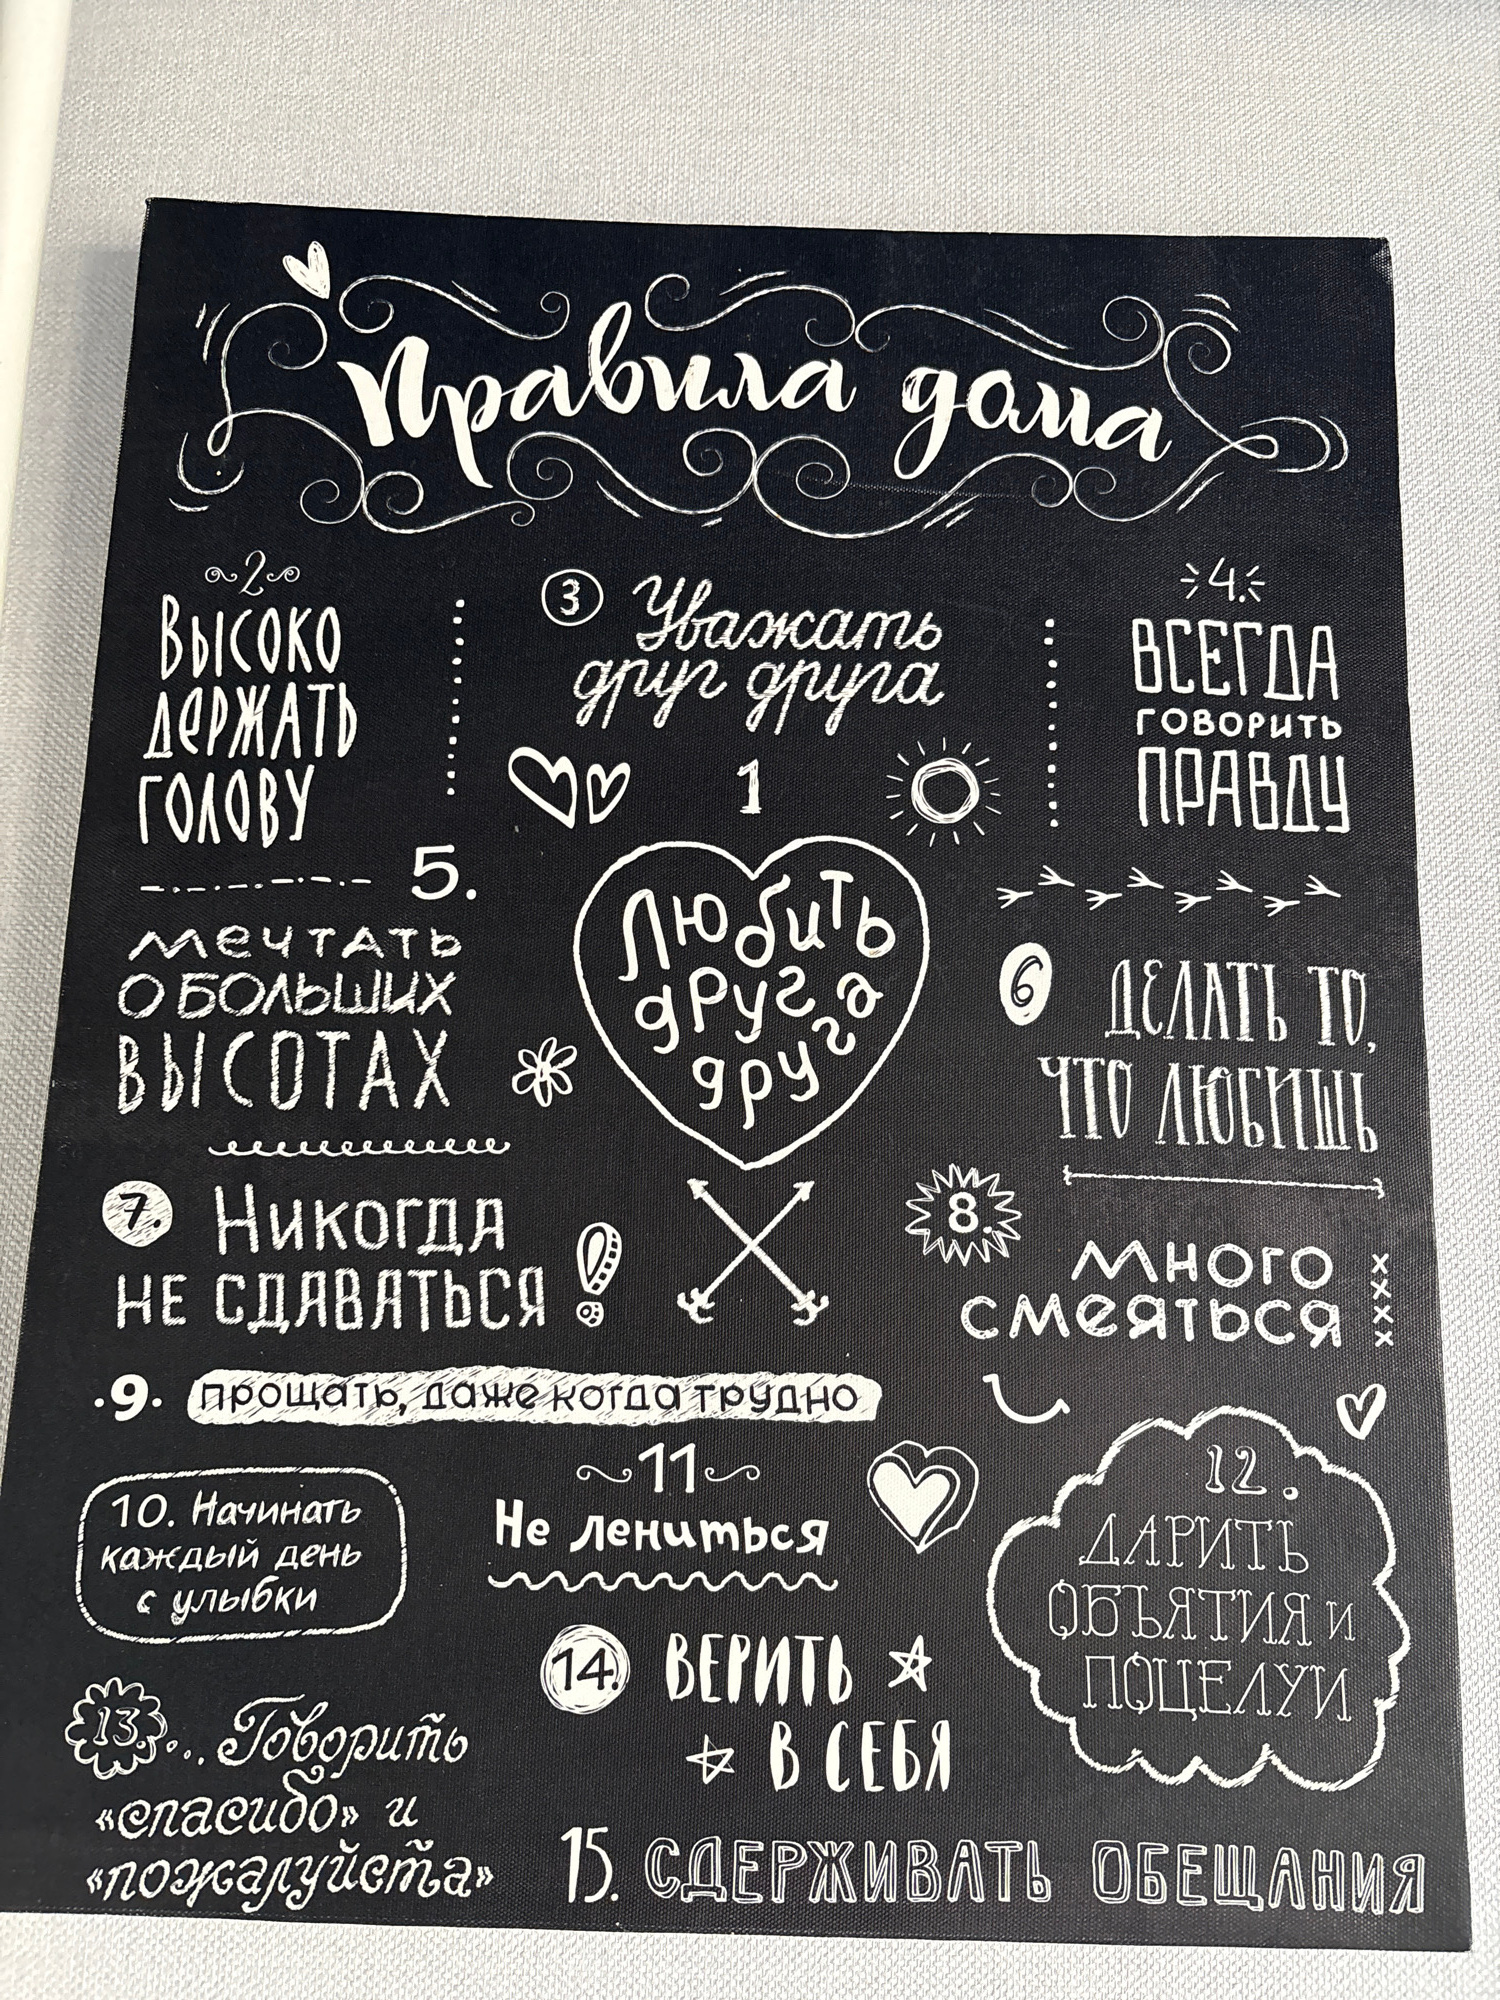 Правила дома
2
Высоко
держать
голову
3 Уважать
друг друга
4.
ВСЕГДА
ГОВОРИТЬ
ПРАВДУ
1
Любить
друг
друга
5.
мечтать
о больших
высотах
6 ДЕЛАТЬ ТО,
ЧТО ЛЮБИШЬ
7. Никогда
не сдаваться!
8.
много
смеяться
.9. прощать, даже когда трудно
10. Начинать
каждый день
с улыбки
11
Не лениться
12.
ДАРИТЬ
ОБЪЯТИЯ и
ПОЦЕЛУИ
13... Говорить
«спасибо» и
«пожалуйста»
14. ВЕРИТЬ
В СЕБЯ
15. СДЕРЖИВАТЬ ОБЕЩАНИЯ